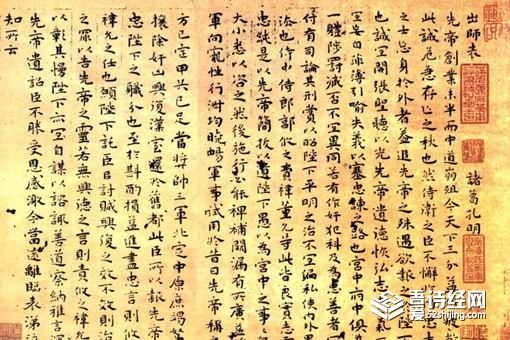 出師表 諸葛孔明
先帝創業未半而中道崩殂今天下三分益州疲敝
此誠危急存亡之秋也然侍衛之臣不懈於內忠志
之士忘身於外者蓋追先帝之殊遇欲報之陛下
也誠宜開張聖聽以光先帝遺德恢弘志士之氣
宜妄自菲薄引喻失義以塞忠諫之路也宮中府中俱
一體陟罰臧否不宜異同若有作奸犯科及為忠善者
付有司論其刑賞以昭陛下平明之治不宜偏私使內外
法也侍中侍郎郭攸之費禕董允等此皆良實志
忠純是以先帝簡拔以遺陛下愚以為宮中之事
大小悉以咨之然後施行必能裨補闕漏有所廣益
軍向寵性行淑均曉暢軍事試用於昔日先帝稱之
方已定甲兵已足當獎帥三軍北定中原庶竭駑
攘除奸凶興復漢室還於舊都此臣所以報先帝
忠陛下之職分也至於斟酌損益進盡忠言則攸
禕允之任也願陛下託臣以討賊興復之效不效則治
之罪以告先帝之靈若無興德之言則責攸之
以彰其慢陛下亦宜自謀以諮諏善道察納雅言深
先帝遺詔臣不勝受恩感激今當遠離臨表涕泣
知所云
吾诗经网
52shijing.com